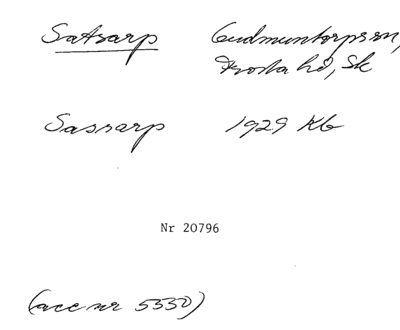 Satsarp Gudmuntorps sn,
Frosta hd, Sk
Sassarp 1929 Kb
Nr 20796
(acc nr 5550)